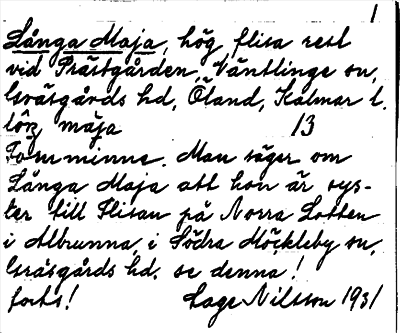 1
Långa Maja, hög flisa rest
vid Prästgården, Ventlinge sn,
Gräsgårds hd, Öland, Kalmar l.
låŋ maja 13
Fornminne. Man säger om
Långa Maja att hon är sys-
ter till Flisan på Norra Lotten
i Albrunna, i Södra Möckleby sn,
Gräsgårds hd. se denna!
forts! Lage Nilsson 1931